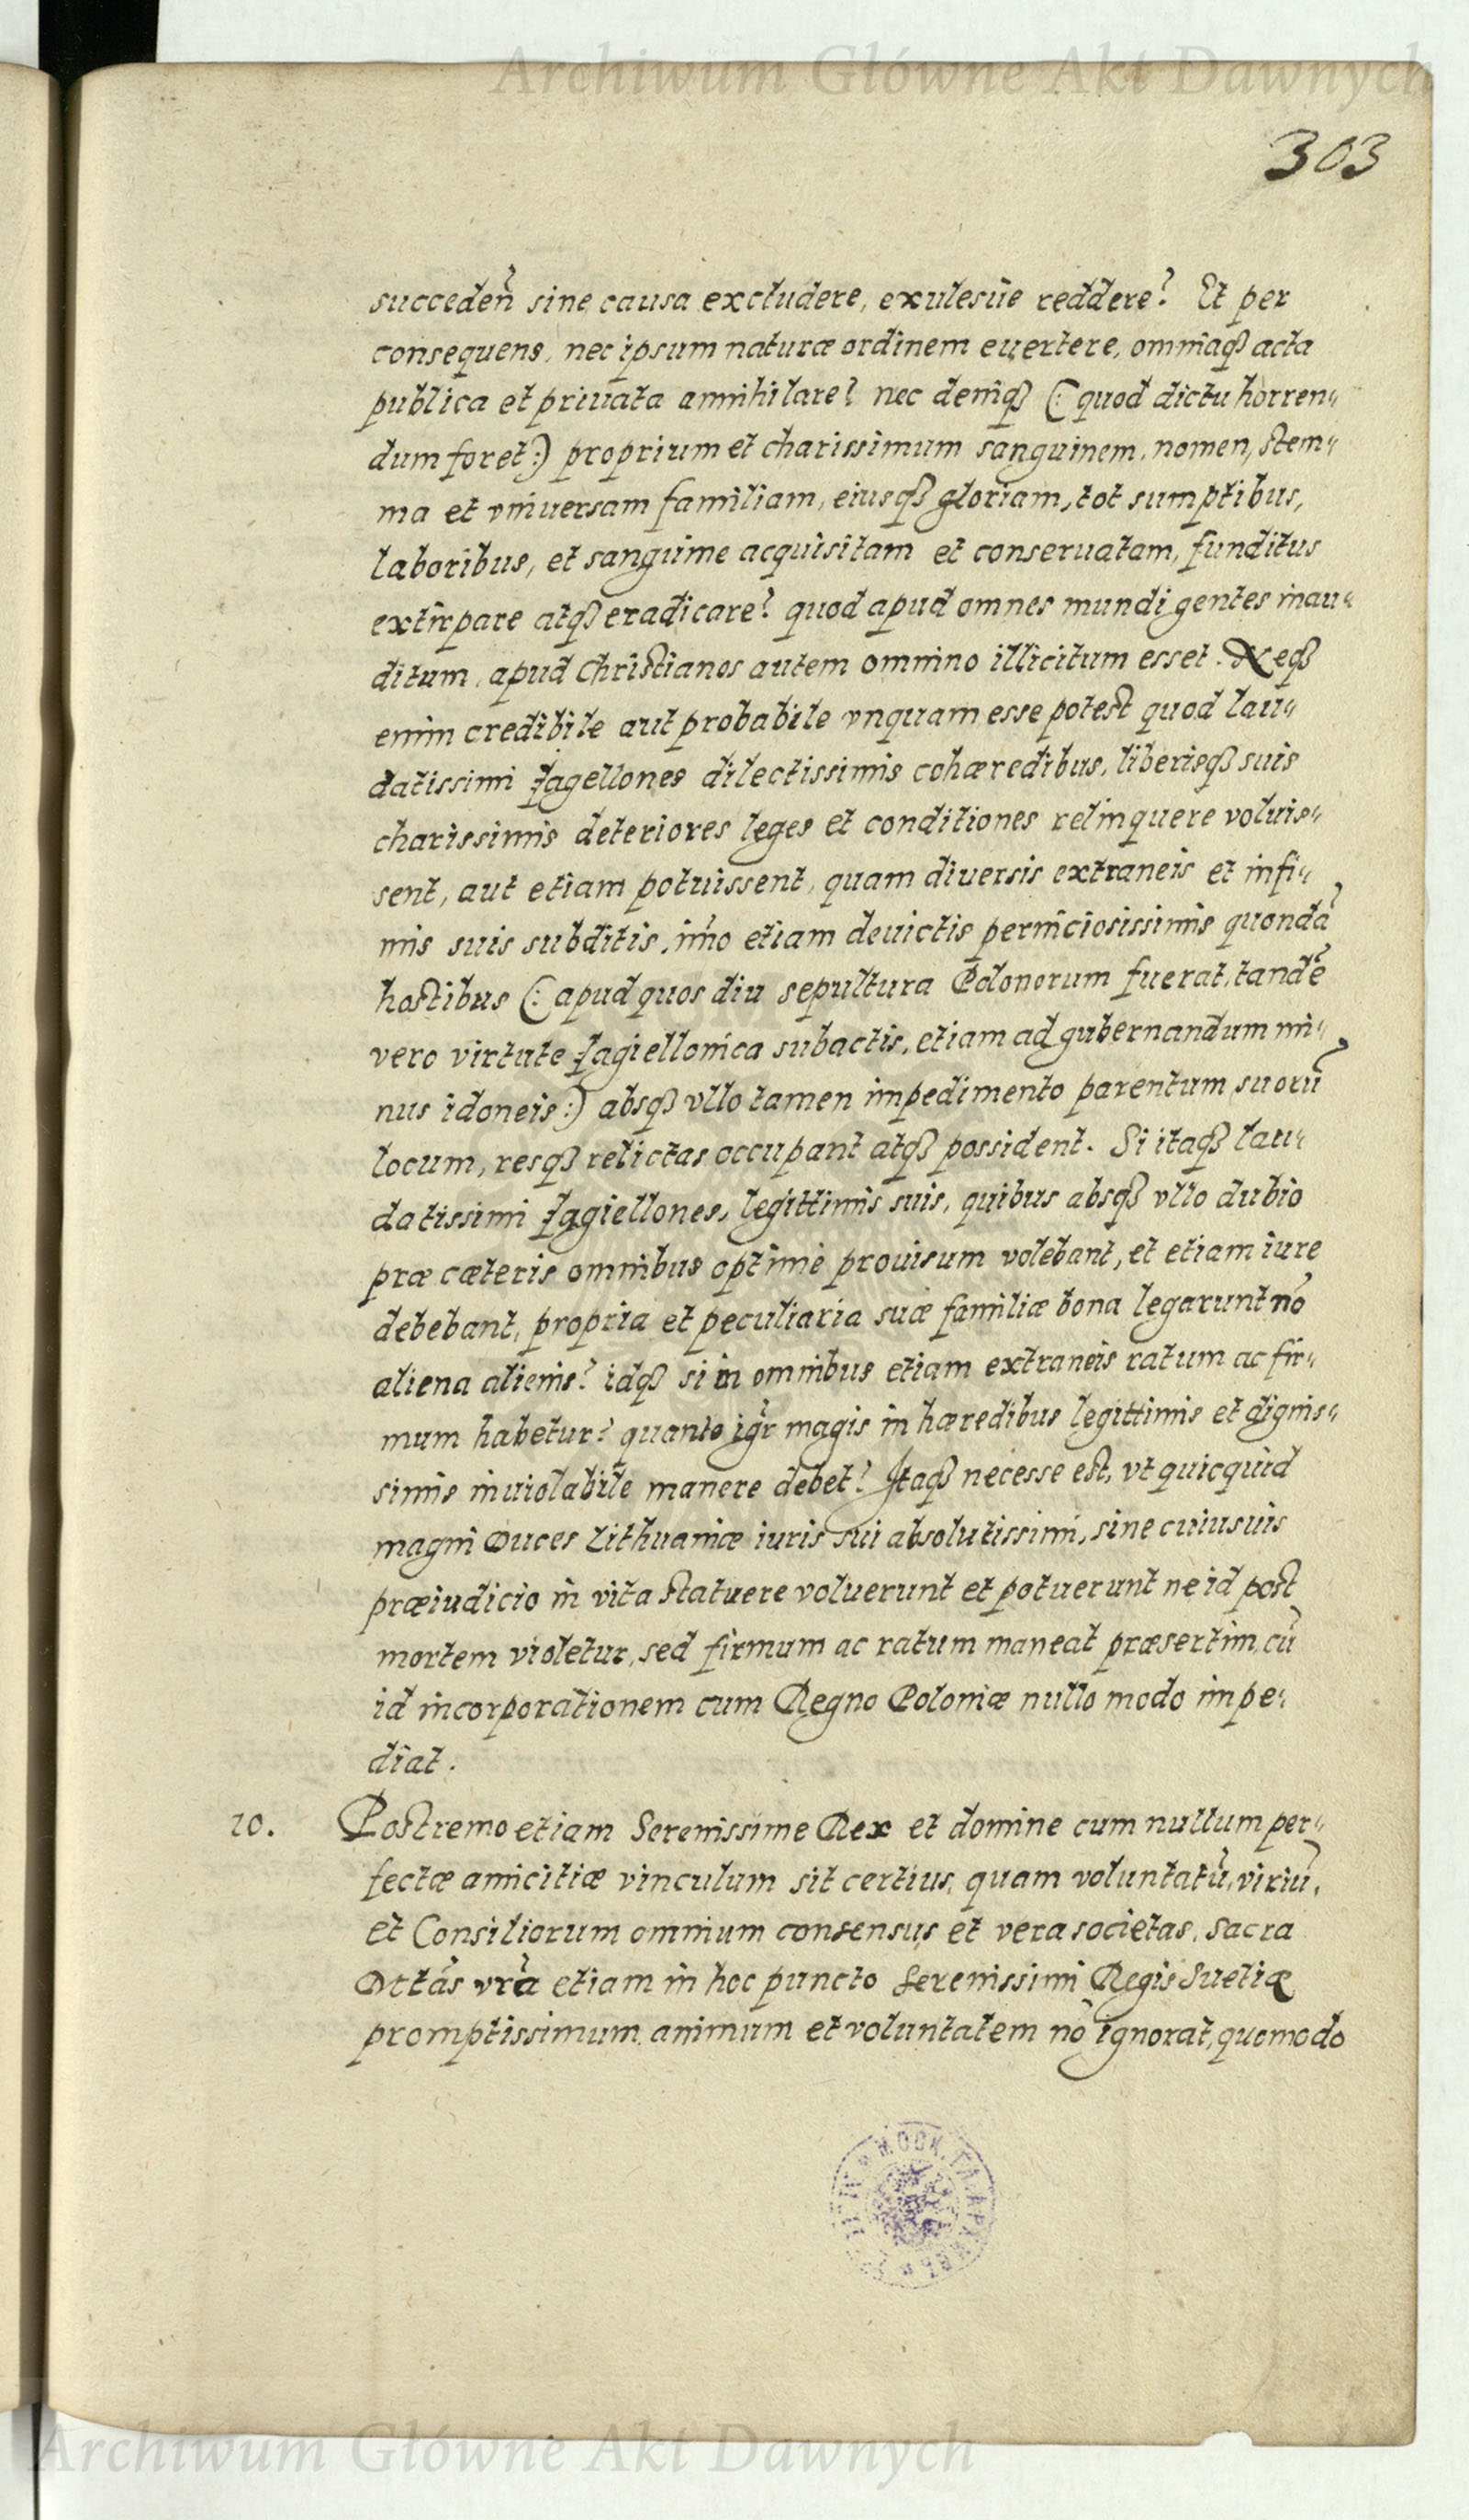 Archiwum Główne Akt Dawnych
303
succedeñ sine causa excludere, exulesue reddere? Et per
consequens, nec ipsum naturæ ordinem euertere, omniaqꝫ acta
publica et priuata annihilare? nec deniqꝫ (: quod dictu horren„
dum foret :) proprium et charissimum sanguinem, nomen, stem„
ma et vniuersam familiam, eiusqꝫ gloriam, tot sumptibus,
laboribus, et sanguine acquisitam et conseruatam, funditus
extirpare atqꝫ eradicare? quod apud omnes mundi gentes inau„
ditum, apud Christianos autem omnino illicitum esset. Neqꝫ
enim credibile aut probabile vnquam esse potest quod lau„
datissimi Jagellones dilectissimis cohæredibus, liberisqꝫ suis
charissimis deteriores leges et conditiones relinquere voluis„
sent, aut etiam potuissent, quam diuersis extraneis et infi„
mis suis subditis, imò etiam deuictis perniciosissimis quondã
hostibus (: apud quos diu sepultura Polonorum fuerat, tandẽ
vero virtute Jagiellonica subactis, etiam ad gubernandum mi„
nus idoneis :) absqꝫ vllo tamen impedimento parentum suorũ
locum, resqꝫ relictas occupant atqꝫ possident. Si itaqꝫ lau„
datissimi Jagiellones, legittimis suis, quibus absqꝫ vllo dubio
præ cæteris omnibus optimè prouisum volebant, et etiam iure
debebant, propria et peculiaria suæ familiæ bona legarunt nõ
aliena alienis? idqꝫ si in omnibus etiam extraneis ratum ac fir„
mum habetur? quanto igr̃ magis in hæredibus legittimis et dignis„
simis inuiolabile manere debet? Itaqꝫ necesse est, vt quicquid
magni Duces Lithuaniæ iuris sui absolutissimi, sine cuiusuis
præiudicio in vita statuere voluerunt et potuerunt ne id post
mortem violetur, sed firmum ac ratum maneat præsertim, cũ
id incorporationem cum Regno Poloniæ nullo modo impe„
diat.
10. Postremo etiam Serenissime Rex et domine cum nullum per„
fectæ amicitiæ vinculum sit certius, quam voluntatũ, viriũ,
et Consiliorum omnium consensus et vera societas, Sacra
Mttãs vrã etiam in hoc puncto Serenissimi Regis Suetiæ
promptissimum animum et voluntatem nõ ignorat, quomodo
Archiwum Główne Akt Dawnych